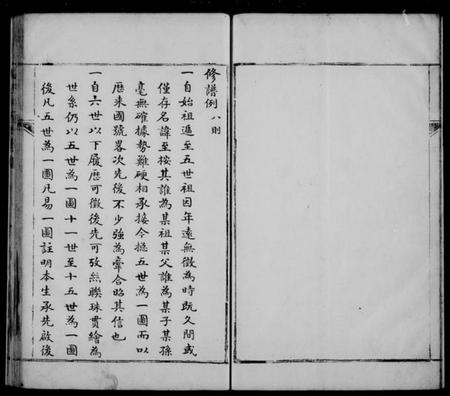 修譜例 八則
一自始祖進至五世祖因年遠無徵為時既久間或
僅存名諱至按其誰為某祖某父誰為某子某孫
毫無確據勢難硬相承接今總五世為一圖而以
歷來國號畧次先後不少強為牽合昭其信也
一自六世以下履歷可徵後先可攷絲聯珠貫繪為
世系仍以五世為一圖十一世至十五世為一圖
後凡五世為一圖凡易一圖註明本生承先啟後